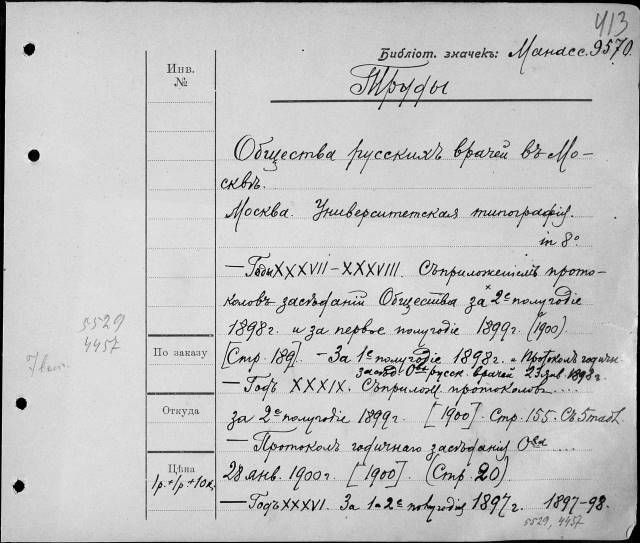 413
Библіот. значекъ: Манасс. 9570.
Инв.
№
Труды
Общества русскихъ врачей въ Мо-
сквѣ.
Москва. Университетская типографія.
in 8°
— Годы XXXVII – XXXVIII. Съ приложеніемъ прото-
коловъ засѣданій Общества за 2е полугодіе
1898 г. и за первое полугодіе 1899 г. (1900)
5529
4457
По заказу
[Стр. 189]. — За 1е полугодіе 1898 г. и Протоколъ годичн.
засѣд. О-ва русск. врачей 23 янв. 1898 г.
— Годъ XXXIX. Съ прилож. протоколовъ ...
Откуда
за 2е полугодіе 1899 г. [1900]. Стр. 155. Съ 5 табл.
— Протоколъ годичнаго засѣданія О-ва ...
Цѣна
1р.+1р+10к.
28 янв. 1900 г. [1900]. (Стр. 20)
— Годъ XXXVI. За 1 и 2е полугодія 1897 г. 1897-98.
5529, 4457